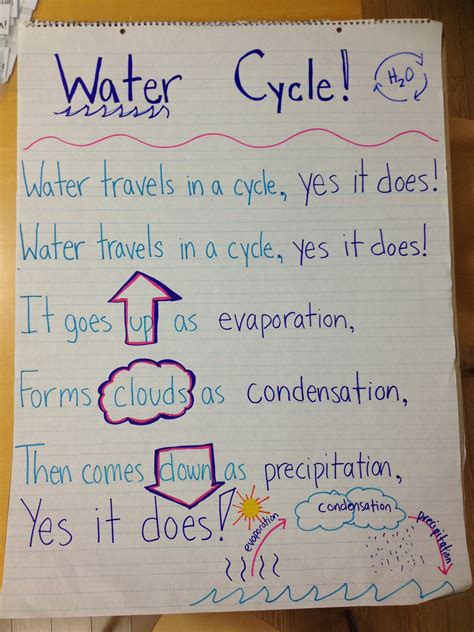 Water Cycle!
H2O
Water travels in a cycle, yes it does!
Water travels in a cycle, yes it does!
It goes up as evaporation,
Forms clouds as condensation,
Then comes down as precipitation,
Yes it does!
evaporation
condensation
precipitation